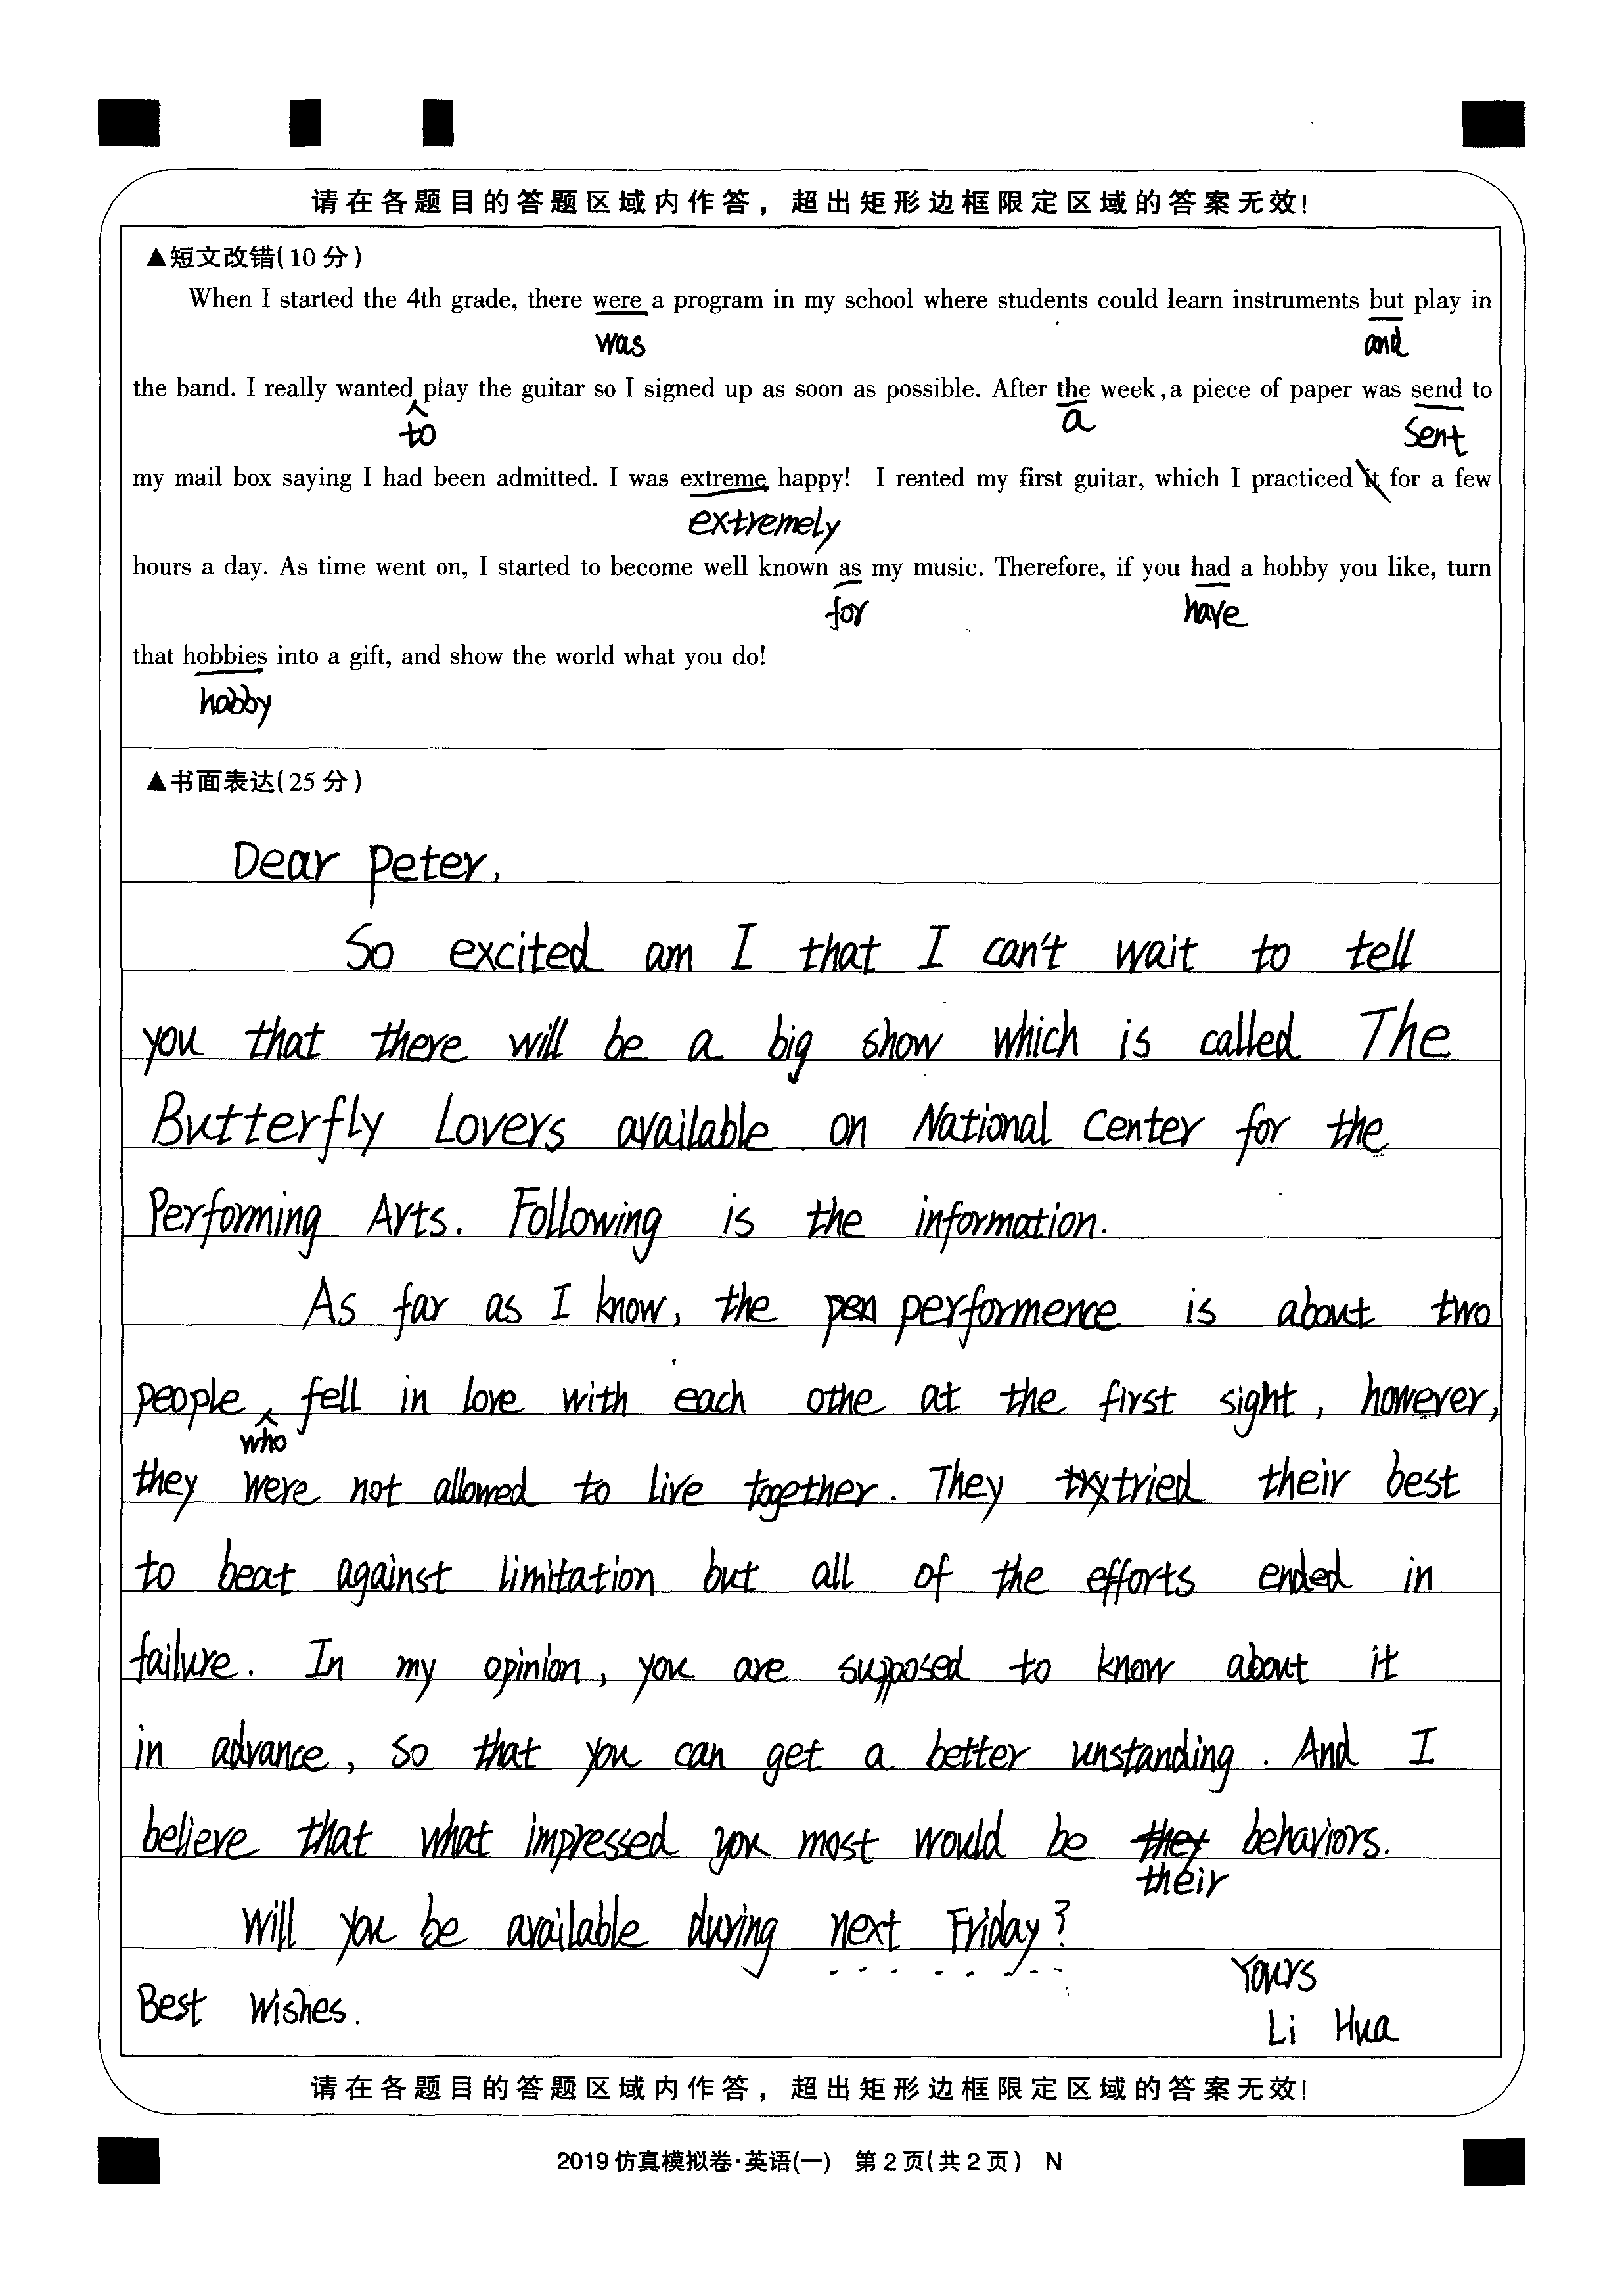 请在各题目的答题区域内作答，超出矩形边框限定区域的答案无效!
▲短文改错(10分)
When I started the 4th grade, there were a program in my school where students could learn instruments but play in
was and
the band. I really wanted play the guitar so I signed up as soon as possible. After the week, a piece of paper was send to
to a sent
my mail box saying I had been admitted. I was extreme happy! I rented my first guitar, which I practiced it for a few
extremely
hours a day. As time went on, I started to become well known as my music. Therefore, if you had a hobby you like, turn
for have
that hobbies into a gift, and show the world what you do!
hobby
▲书面表达(25分)
Dear Peter,
So excited am I that I can't wait to tell
you that there will be a big show which is called The
Butterfly Lovers available on National Center for the
Performing Arts. Following is the information.
As far as I know, the pen performence is about two
people fell in love with each othe at the first sight, however,
who
they were not allowed to live together. They try tried their best
to beat against limitation but all of the efforts ended in
failure. In my opinion, you are supposed to know about it
in advance, so that you can get a better unstanding. And I
believe that what impressed you most would be they behaviors.
their
Will you be available during next Friday?
Yours
Best Wishes.
Li Hua
请在各题目的答题区域内作答，超出矩形边框限定区域的答案无效!
2019仿真模拟卷·英语(一) 第2页(共2页) N